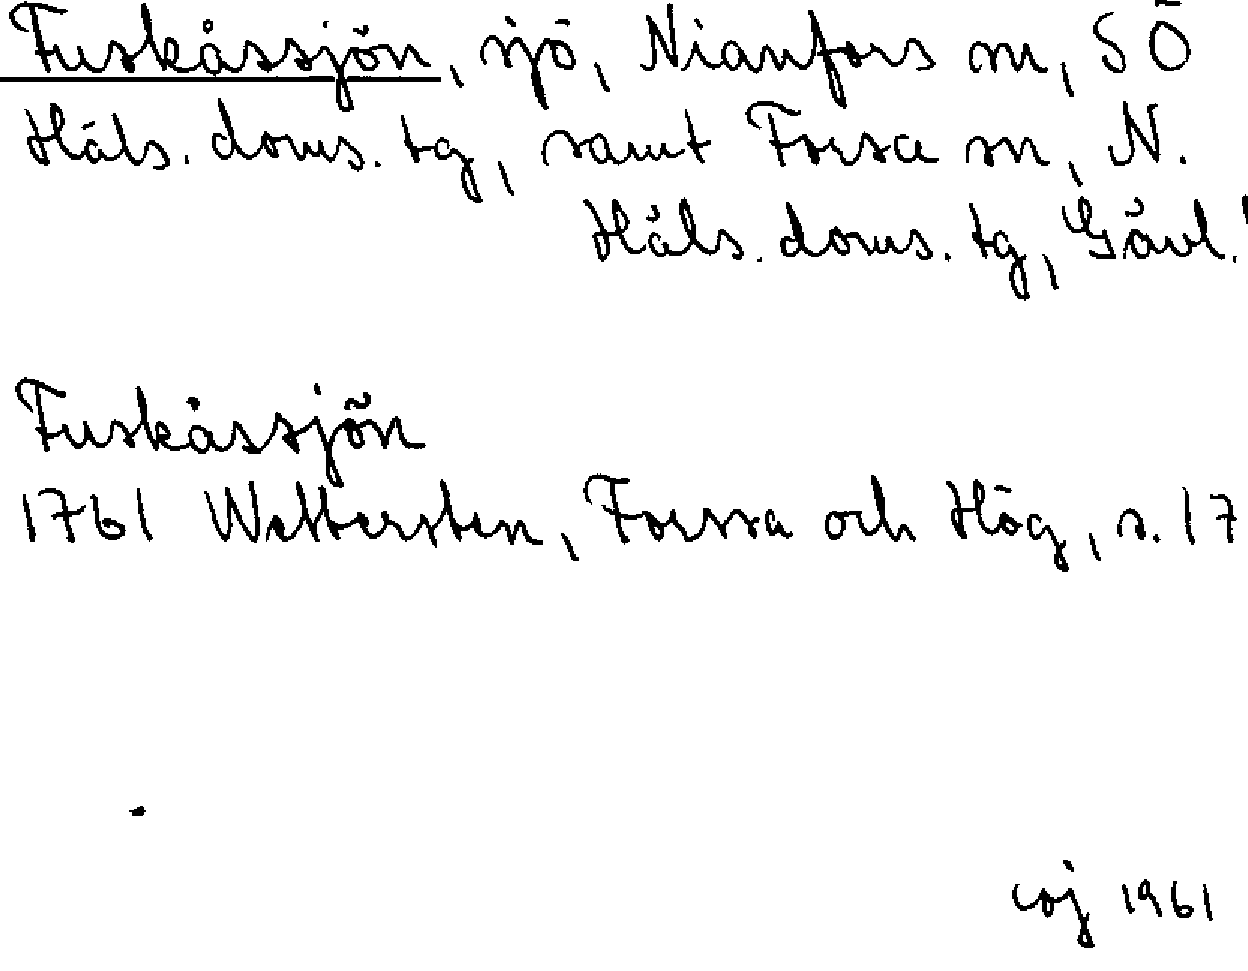 Fuskåssjön, sjö, Nianfors sn, SÖ
Häls. doms. tg, samt Forsa sn, N.
Häls. doms. tg, Gävl.
Fuskåssjön
1761 Wettersten, Forssa och Hög, s. 17
coj 1961